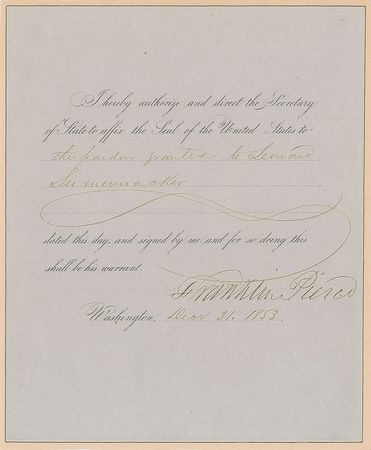 I hereby authorize and direct the Secretary
of State to affix the Seal of the United States to
the pardon granted to Leonard
dated this day, and signed by me and for so doing this
shall be his warrant.
Franklin Pierce
Washington, Decr 31, 1853.